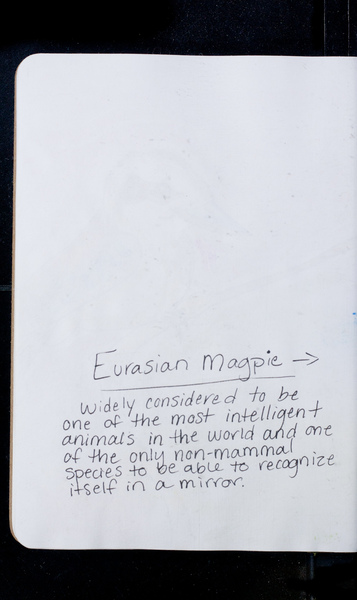 Eurasian Magpie →
Widely considered to be
one of the most intelligent
animals in the world and one
of the only non-mammal
species to be able to recognize
itself in a mirror.